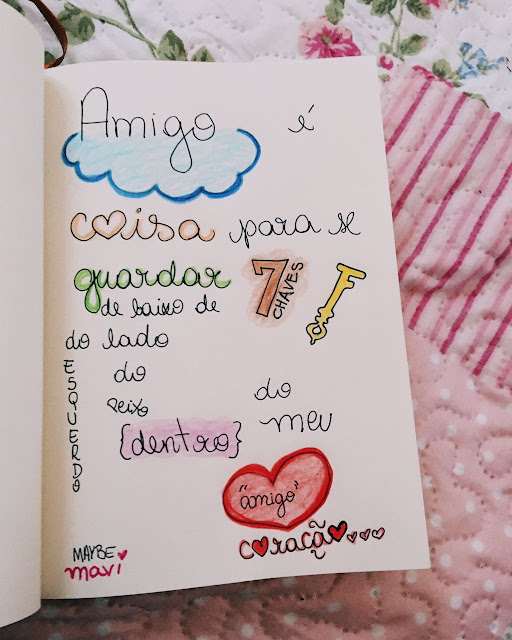 Amigo é
coisa para se
guardar
de baixo de
7 CHAVES
do lado
ESQUERDO
do
peixo
{dentro}
do
meu
"amigo"
coração
MAYBE
mavi